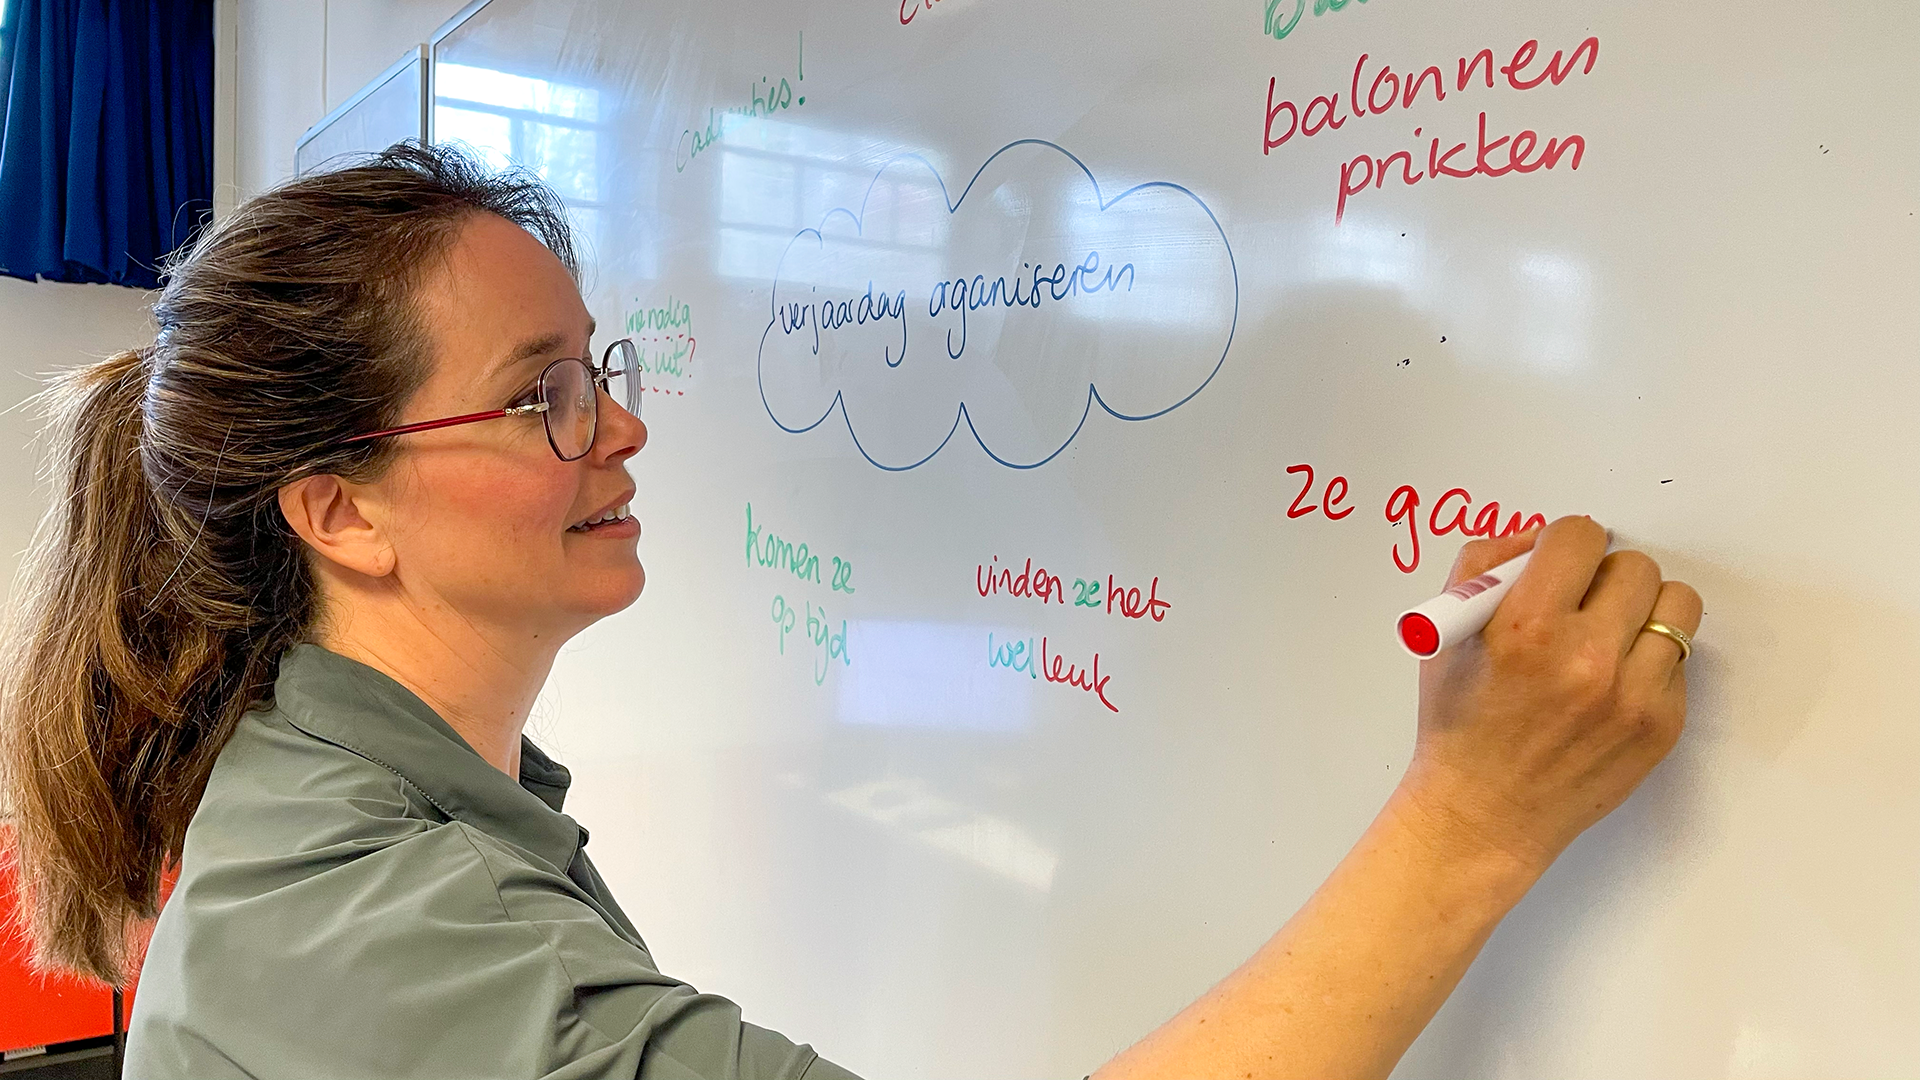 cadeautjes!
balonnen
prikken
verjaardag organiseren
wie nodig
ik uit?
ze gaan
komen ze
op tijd
vinden ze het
wel leuk